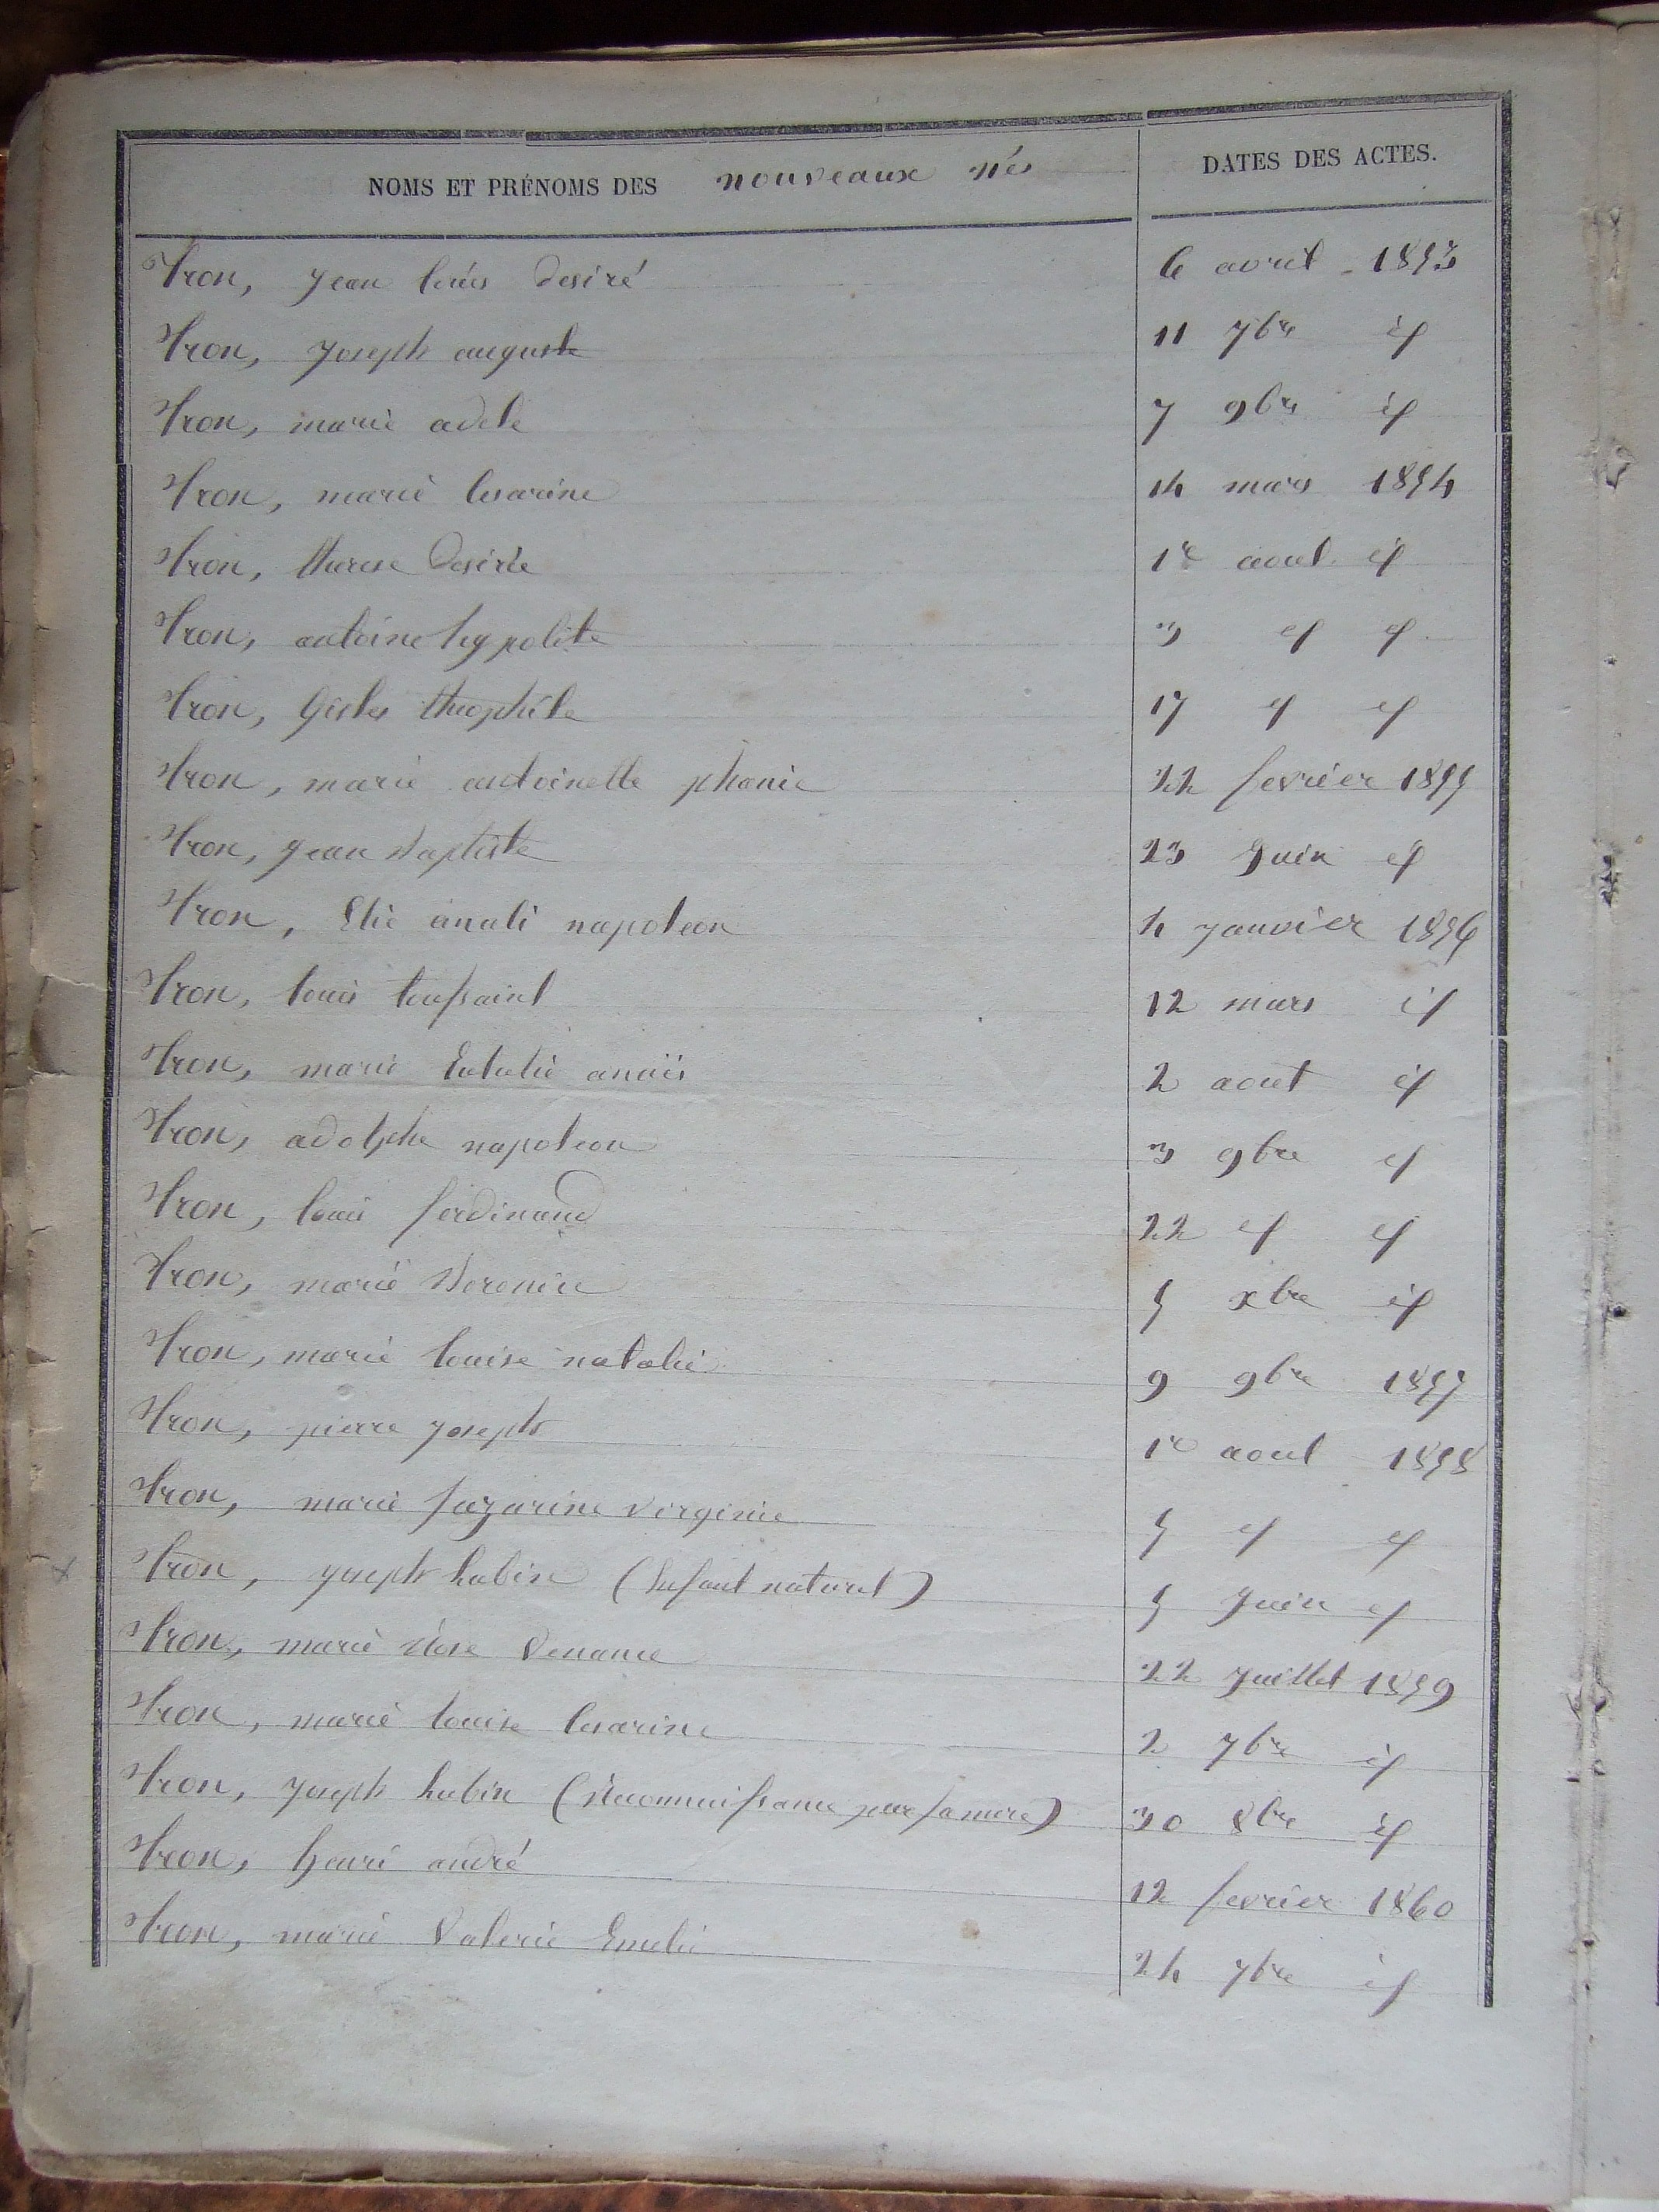 NOMS ET PRÉNOMS DES nouveaux nés DATES DES ACTES.
Tron, Jean louis desiré 6 avril 1853
Tron, Joseph auguste 11 7bre id
Tron, marie adele 7 9bre id
Tron, marie Cesarine 14 mars 1854
Tron, therese Desirée 1er aout id
Tron, antoine hypolite 3 id id
Tron, théophile 17 id id
Tron, marie antoinette phanie 22 fevrier 1855
Tron, Jean Baptiste 23 Juin id
Tron, Elie napoleon 4 Janvier 1856
Tron, louis toussaint 12 mars id
Tron, marie Eulalie anaïs 2 aout id
Tron, adolphe napoleon 3 9bre id
Tron, louis ferdinand 22 id id
Tron, marie 5 xbre id
Tron, marie louise natalie 9 9bre 1857
Tron, pierre Joseph 1er aout 1858
Tron, marie virginie 5 id id
Tron, Joseph hubin (Enfant naturel) 5 Juin id
Tron, marie rose Venance 22 Juillet 1859
Tron, marie louise Cesarine 2 7bre id
Tron, Joseph hubin (Reconnaissance par sa mere) 30 8bre id
Tron, henri andré 12 fevrier 1860
Tron, marie Valerie Emelie 24 7bre id